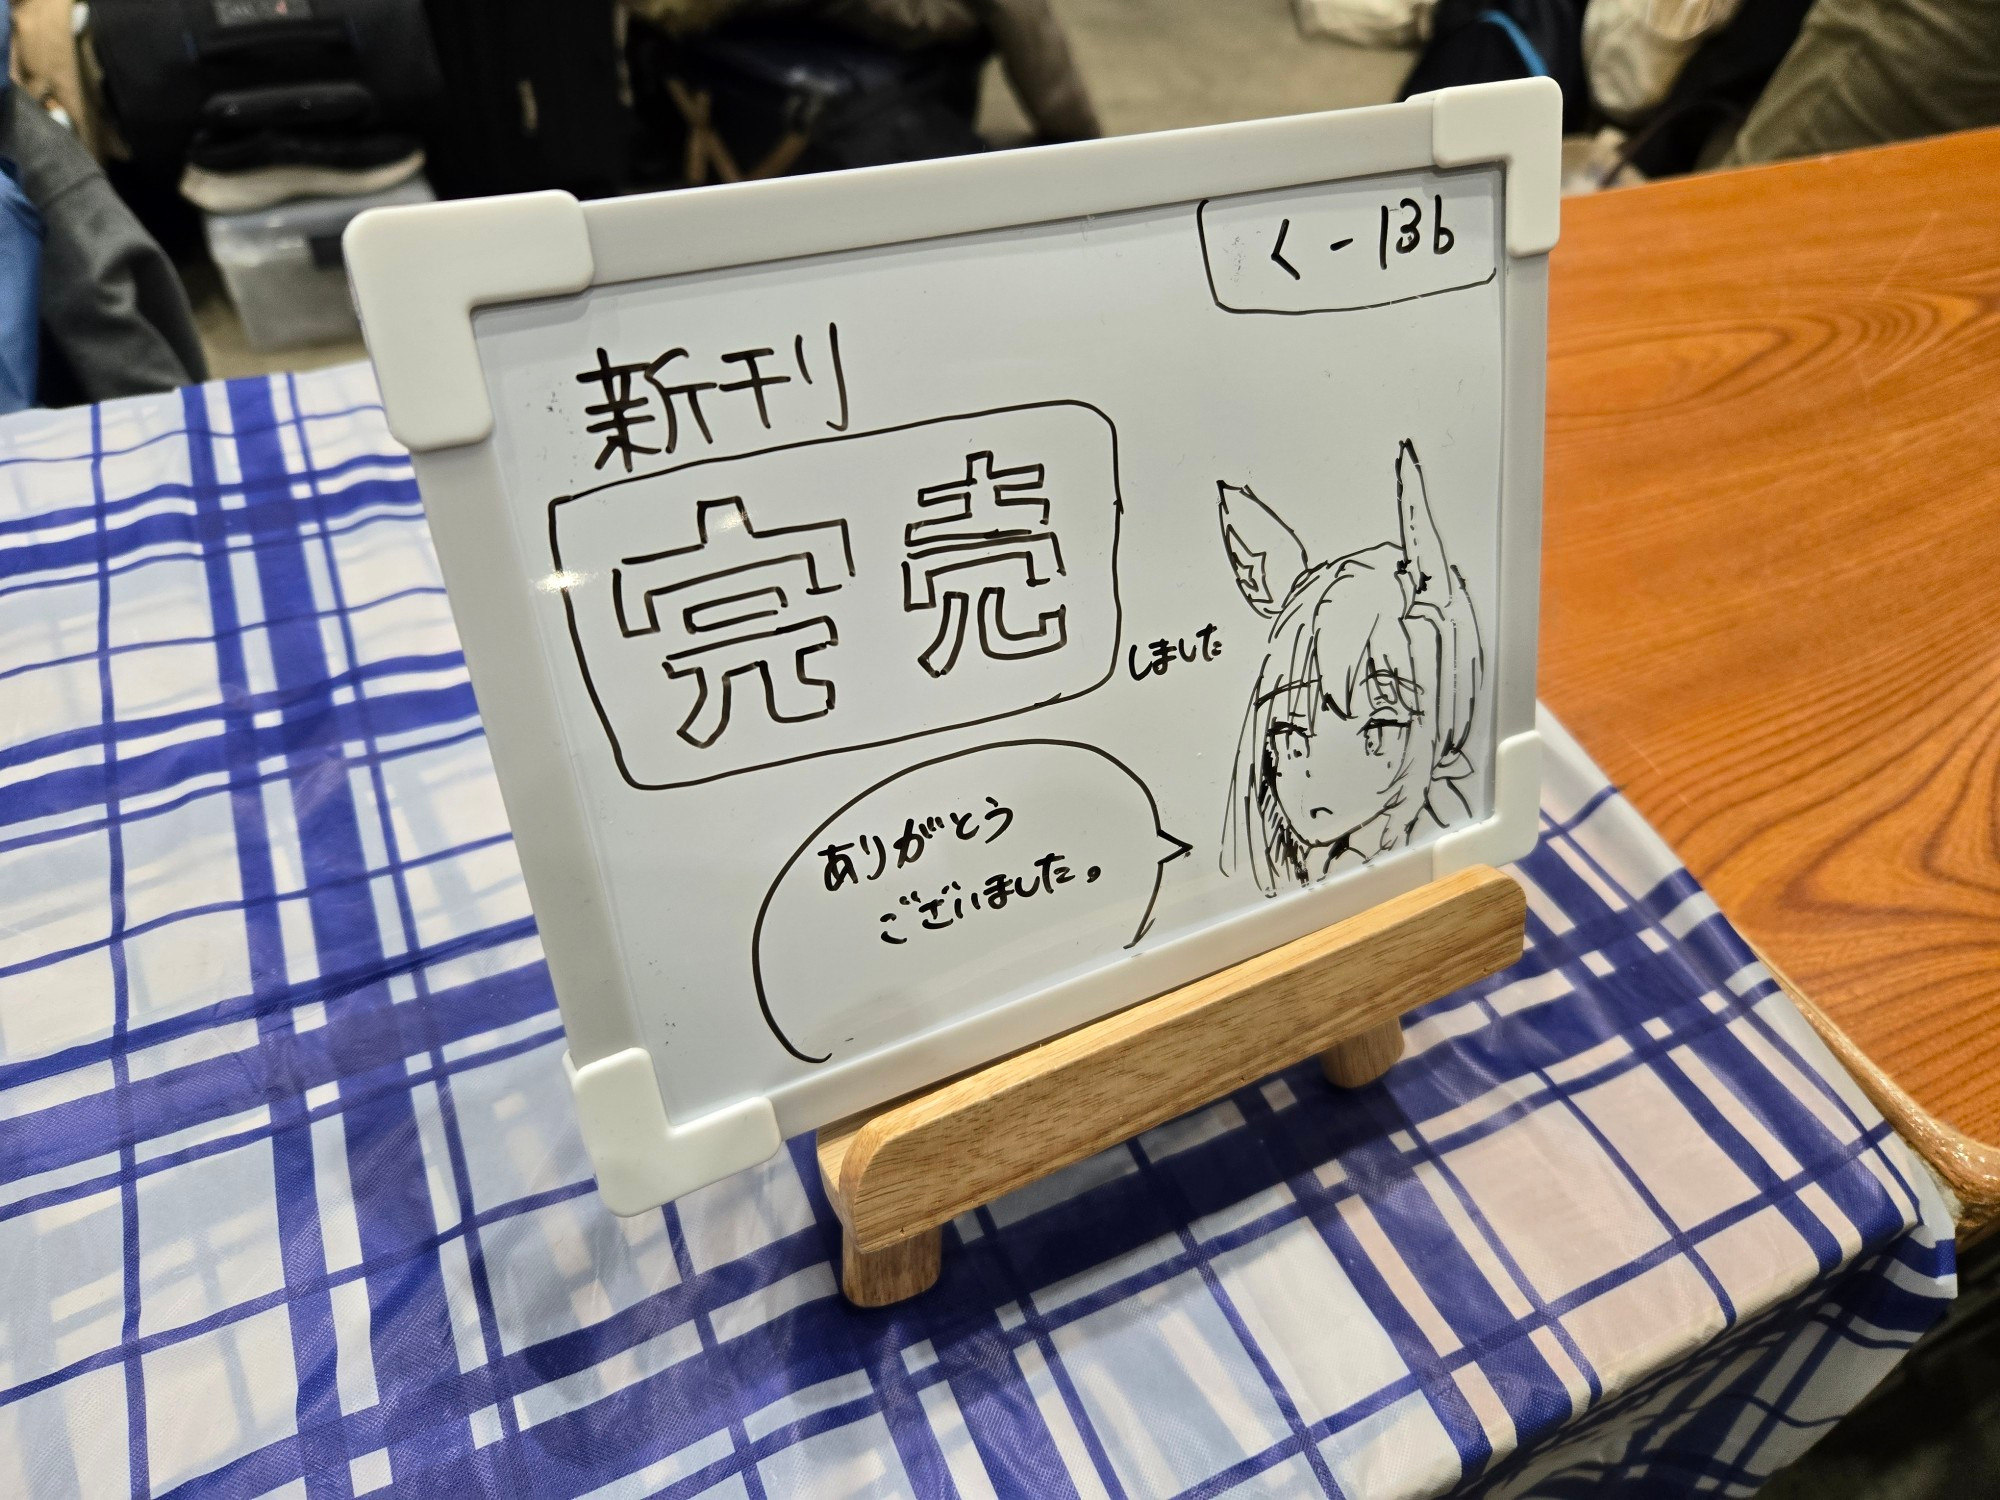 く-13b
新刊
完売
しました
ありがとう
ございました。